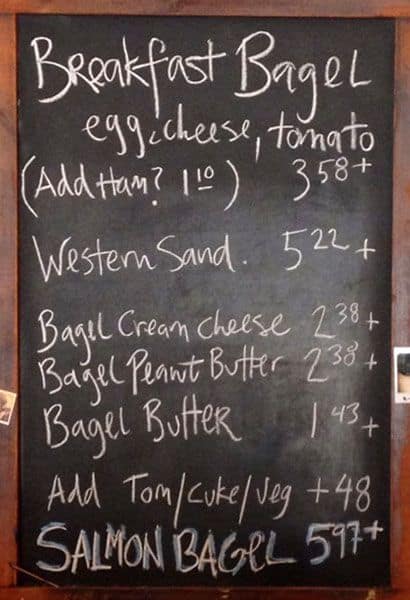 Breakfast Bagel
egg, cheese, tomato
(Add Ham? 1 10) 3 58+
Western Sand. 5 22 +
Bagel Cream cheese 2 38+
Bagel Peanut Butter 2 38+
Bagel Butter 1 43+
Add Tom/cuke/veg +48
SALMON BAGEL 597+